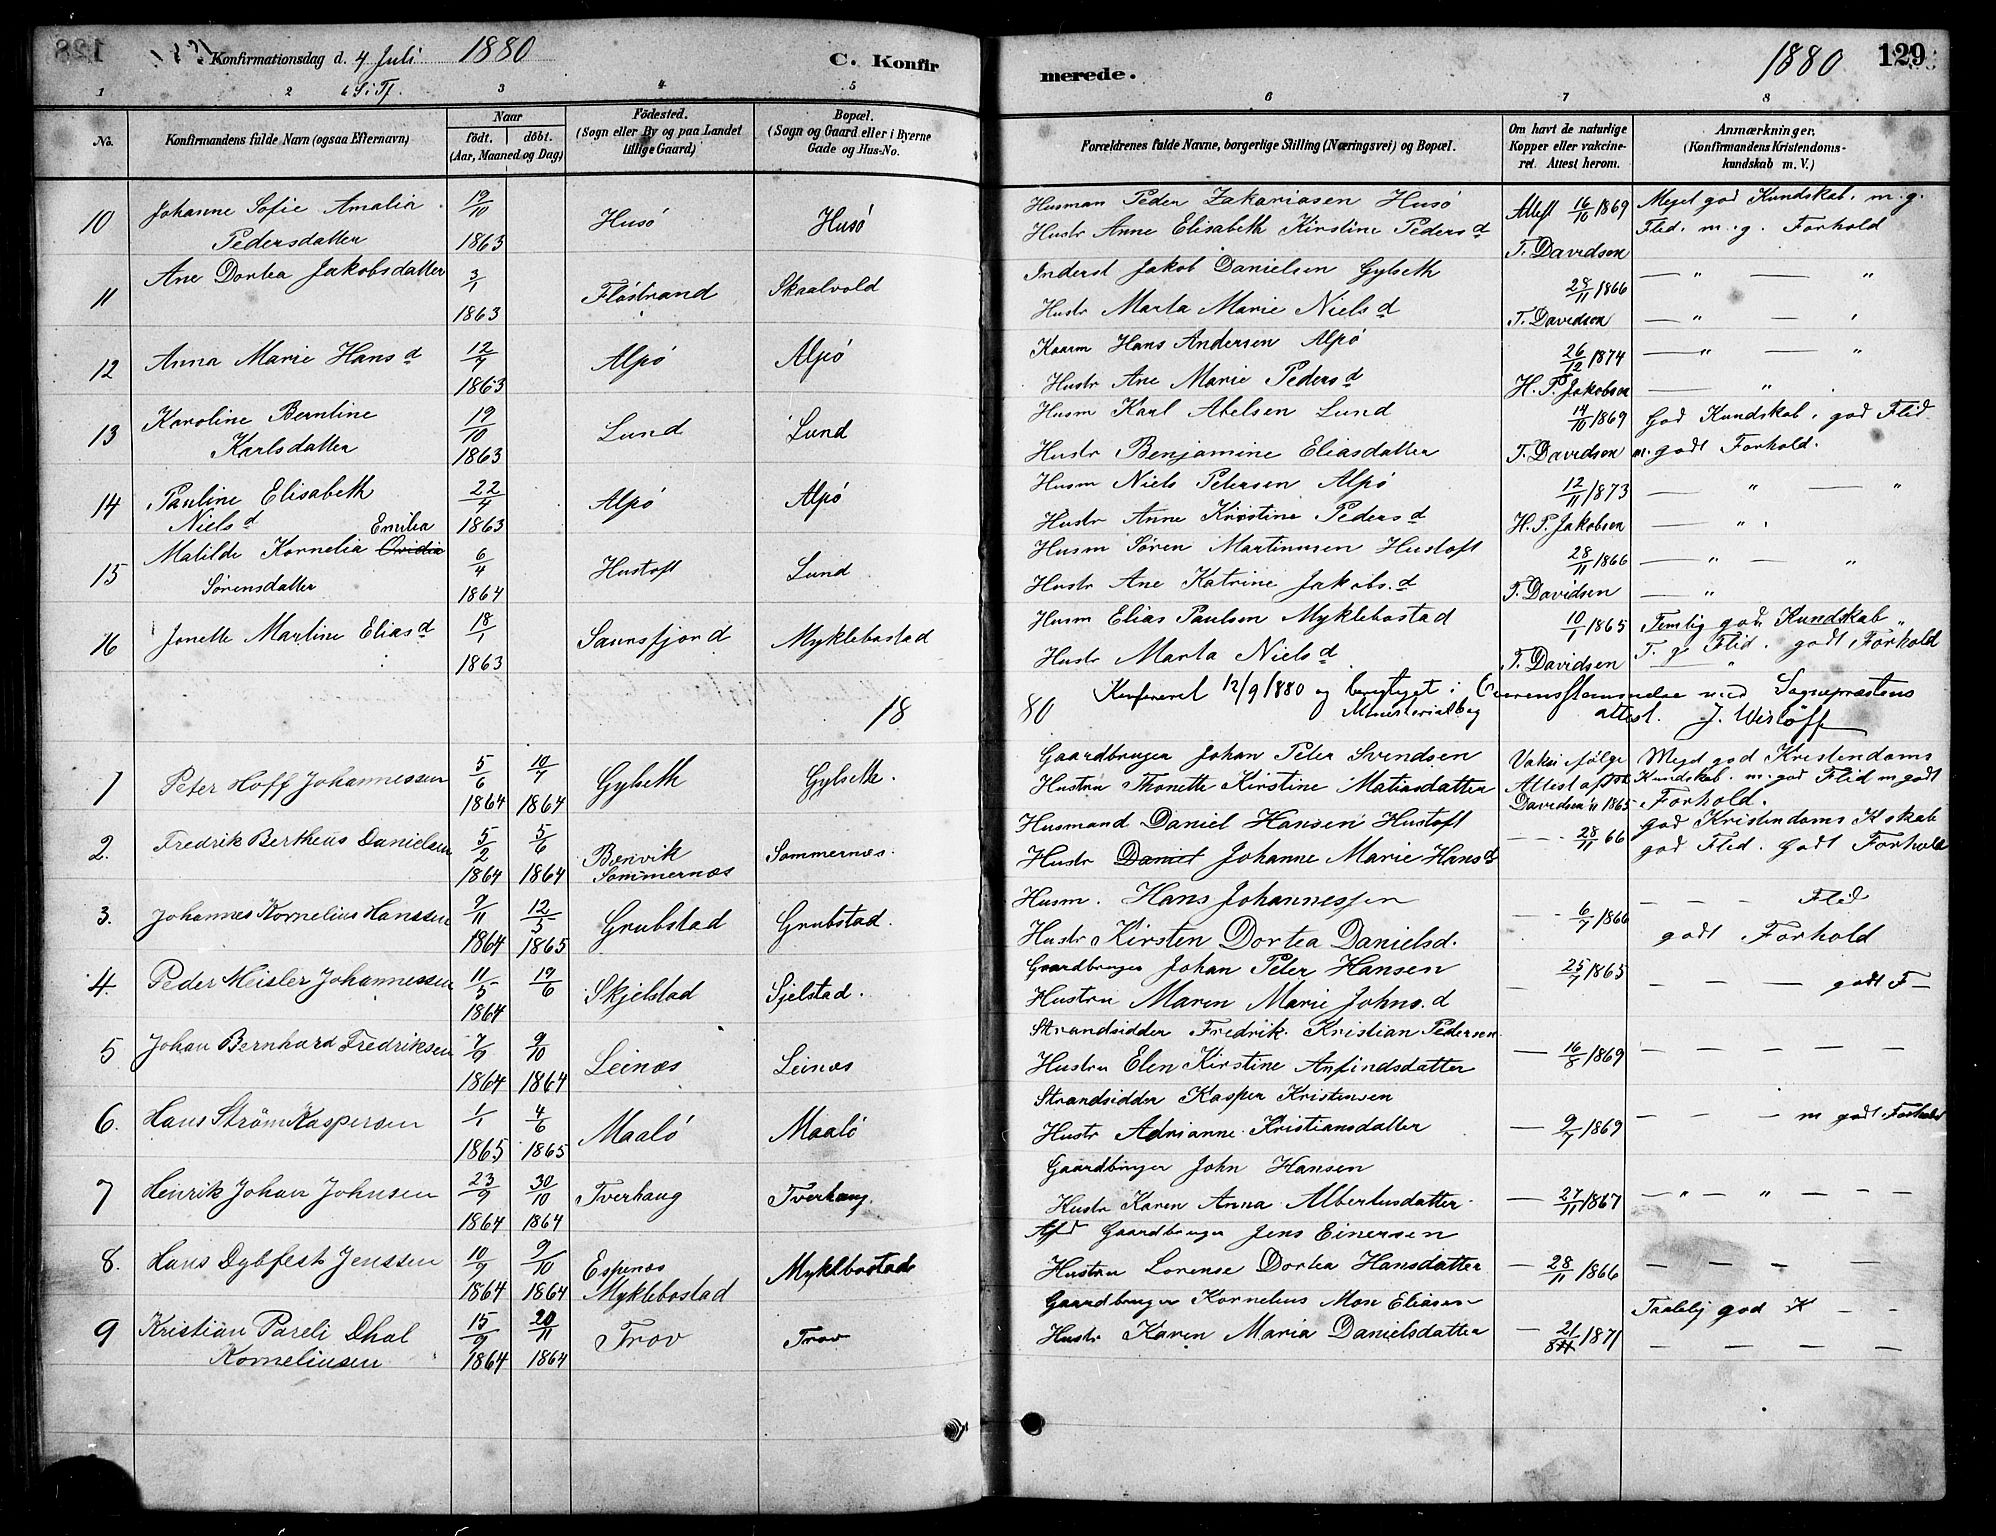 Konfirmationsdag d. 4 Juli 1880 C. Konfirmerede. 1880 129
6 S. i Tf.
1 2 3 4 5 6 7 8
No. Konfirmandens fulde Navn (ogsaa Efternavn) Naar födt. döbt. (Aar, Maaned og Dag) Födested. (Sogn eller By og paa Landet tillige Gaard) Bopæl. (Sogn og Gaard eller i Byerne Gade og Hus-No. Forældrenes fulde Navne, borgerlige Stilling (Næringsvei) og Bopæl. Om havt de naturlige Kopper eller vakcineret. Attest herom. Anmærkninger. (Konfirmandens Kristendomskundskab m. V.)
10 Johanne Sofie Amalia Pedersdatter 19/10 1863 Husö Husö Husman Peder Zakariasen Husö
Hustr Anne Elisabeth Kirstine Peders d Attest 16/10 1869 T. Davidson Meget god Kundskab. m. g. Flid. m. g. Forhold
11 Ane Dortea Jakobsdatter 3/1 1863 Flöstrand Skaalvold Inderst Jakob Danielsen Gylseth
Hustr Marta Marie Niels d 28/11 1866 T. Davidson — " — "
— " —
12 Anna Marie Hans d 12/7 1863 Alpö Alpö Kaarm Hans Andersen Alpö
Hustr Ane Marie Peders d 26/12 1874 H. P. Jakobson — " — "
— "
13 Karoline Berntine Karlsdatter 19/10 1863 Lund Lund Husm Karl Abelsen Lund
Hustr Benjamine Eliasdatter 14/10 1869 T. Davidson God Kundskab. god Flid
m. godt Forhold.
14 Pauline Elisabeth Niels d 22/4 1863 Alpö Alpö Husm Niels Petersen Alpö
Hustr Anne Kristine Peders d 12/11 1873 H. P. Jakobson — " — "
— "
15 Matilde Kornelia Ovidia Emilia Sörensdatter 6/4 1864 Hustoft Lund Husm Sören Martinusen Hustoft
Hustr Ane Katrine Jakobs. d 28/11 1866 T. Davidsen — " — "
— "
16 Jonette Martine Elias d 18/1 1863 Saursfjord Myklebostad Husm Elias Paulsen Myklebostad
Hustr Marta Niels d 10/1 1865 T. Davidsen Temlig god Kundskab
T. g. Flid. godt Forhold
Konfereret 12/9 1880 og berigtiget i Overensstemmelse med Sognepræstens
Ministerialbog attest. J. Wislöff
18 80
1 Peter Hoff Johannessen 5/6 1864 10/7 1864 Gylseth Gylseth. Gaardbruger Johan Peter Svendsen
Hustru Thonette Kirstine Matiasdatter Vaksi ifölge Attest af Davidsen 11 1865 Meget god Kristendoms Kundskab. m. god Flid m godt Forhold.
2. Fredrik Bertheus Danielsen 5/2 1864 5/6 1864 Bænvik Sommernæs Sommernæs. Husmand Daniel Hansen Hustoft
Hustr Daniel Johanne Marie Hans d — - 28/11 66 god Kristendoms Kskab
god Flid. Godt Forhold
3. Johannes Kornelius Hanssen 9/11 1864 12/3 1865 Grubstad Grubstad. Husm. Hans Johannessen
Hustr Kirsten Dortea Danielsd. — - 6/7 1866 — — — Flid
godt Forhold
4. Peder Meisler Johannessen 11/5 1864 19/6 Skjelstad Sjelstad. Gaardbruger Johan Peter Hansen
Hustru Maren Marie Johns. d — 25/7 1865 — — — godt F—
5 Johan Bernhard Fredriksen 7/9 1864 9/10 1864 Leinæs Leinæs Strandsidder Fredrik. Kristian Pedersen
Hustru Elen Kirstine Anfindsdatter — 16/8 1869 — — — — —
6. Hans Ström Kaspersen 1/1 1865 4/6 1865 Maalö Maalö Strandsidder Kasper Kristensen
Hustr Adrianne Kristiansdatter — 9/7 1869 — — — m godt Forhold
7 Henrik Johan Johnsen 23/9 1864 30/10 1864 Tverhaug Tverhaug. Gaardbruger John Hansen
Hustr Karen Anna Albertusdatter. — 27/11 1867 — " — " — — —
8. Hans Dybfest Jenssen 10/9 1864 9/10 1864 Espenæs Myklebostad Myklbostad Afd Gaardbruger Jens Einersen
Hustru Lorense Dortea Hansdatter — 28/11 1866 — — — —
9 Kristian Pareli Dhal Korneliusen 15/9 1864 20/11 1864 Trov Trov Gaardbruger Kornelius Mon Eliasen
Hustr Karen Maria Danielsdatter — 21/8 1871 Taalelig god K — —
— — — — —